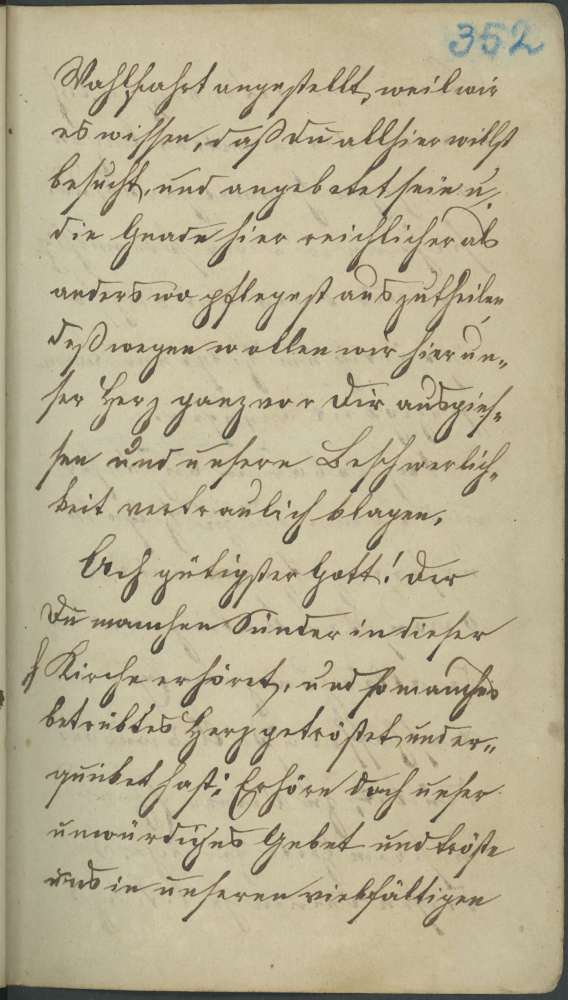 352
Wahlfahrt angestellt, weil wir
es wissen, daß du allhier willst
besucht, und angebetet sein u.
die Gnade hier reichlicher als
anders wo pflegest auszutheilen
deßwegen wollen wir hier un„
ser Herz ganz vor Dir ausgies„
sen und unsere Beschwerlich„
keit vertraulich klagen.
Ach gütigster Gott! der
Du manchen Sünder in dieser
Kirche erhöret, und so manches
betrübtes Herz getröstet und er„
quicket hast: Erhöre doch unser
unwürdiges Gebet und tröste
uns in unseren vielfältigen